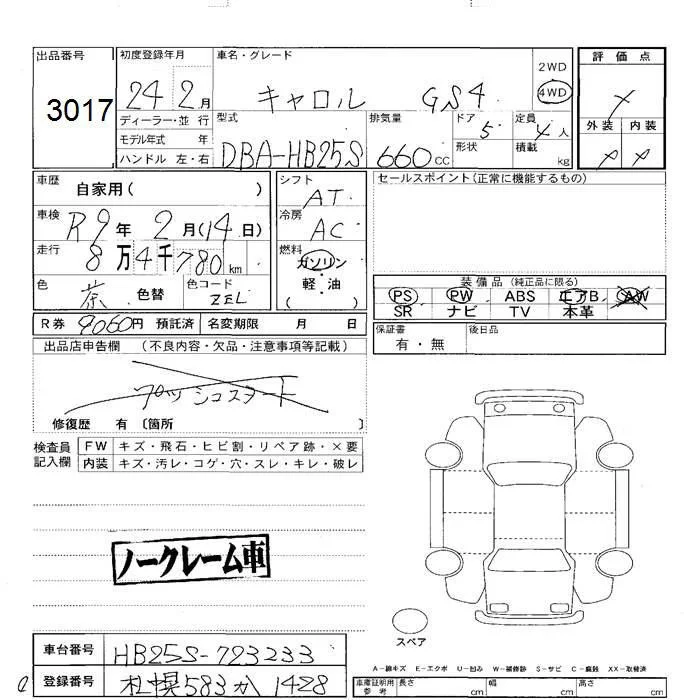 出品番号
3017
初度登録年月
24 2月
ディーラー・並 行
モデル年式 年
ハンドル 左・右
車名・グレード
キャロル GS4
2WD
4WD
型式
DBA-HB25S
排気量
660CC
ドア
5
形状
定員
4人
積載
kg
評 価 点
外装 内装
車歴
自家用( )
車検
R9年 2月(14日)
走行
8万4千780km
色
茶 色替
色コード
ZEL
シフト
AT
冷房
AC
燃料
ガソリン
軽・油
( )
セールスポイント(正常に機能するもの)
装 備 品 (純正品に限る)
PS PW ABS エアB AW
SR ナビ TV 本革
保証書
有・無
後日品
R券 9060円 預託済 名変期限 月 日
出品店申告欄 (不良内容・欠品・注意事項等記載)
プッシュスタート
修復歴 有 〔箇所 〕
検査員
記入欄
FW キズ・飛石・ヒビ割・リペア跡・×要
内装 キズ・汚レ・コゲ・穴・スレ・キレ・破レ
ノークレーム車
スペア
車台番号 HB25S-723233
登録番号 札幌583か1428
A-線キズ E-エクボ U-凹み W-補修跡 S-サビ C-腐蝕 XX-取替済
車庫証明用
参 考
長さ cm 幅 cm 高さ cm